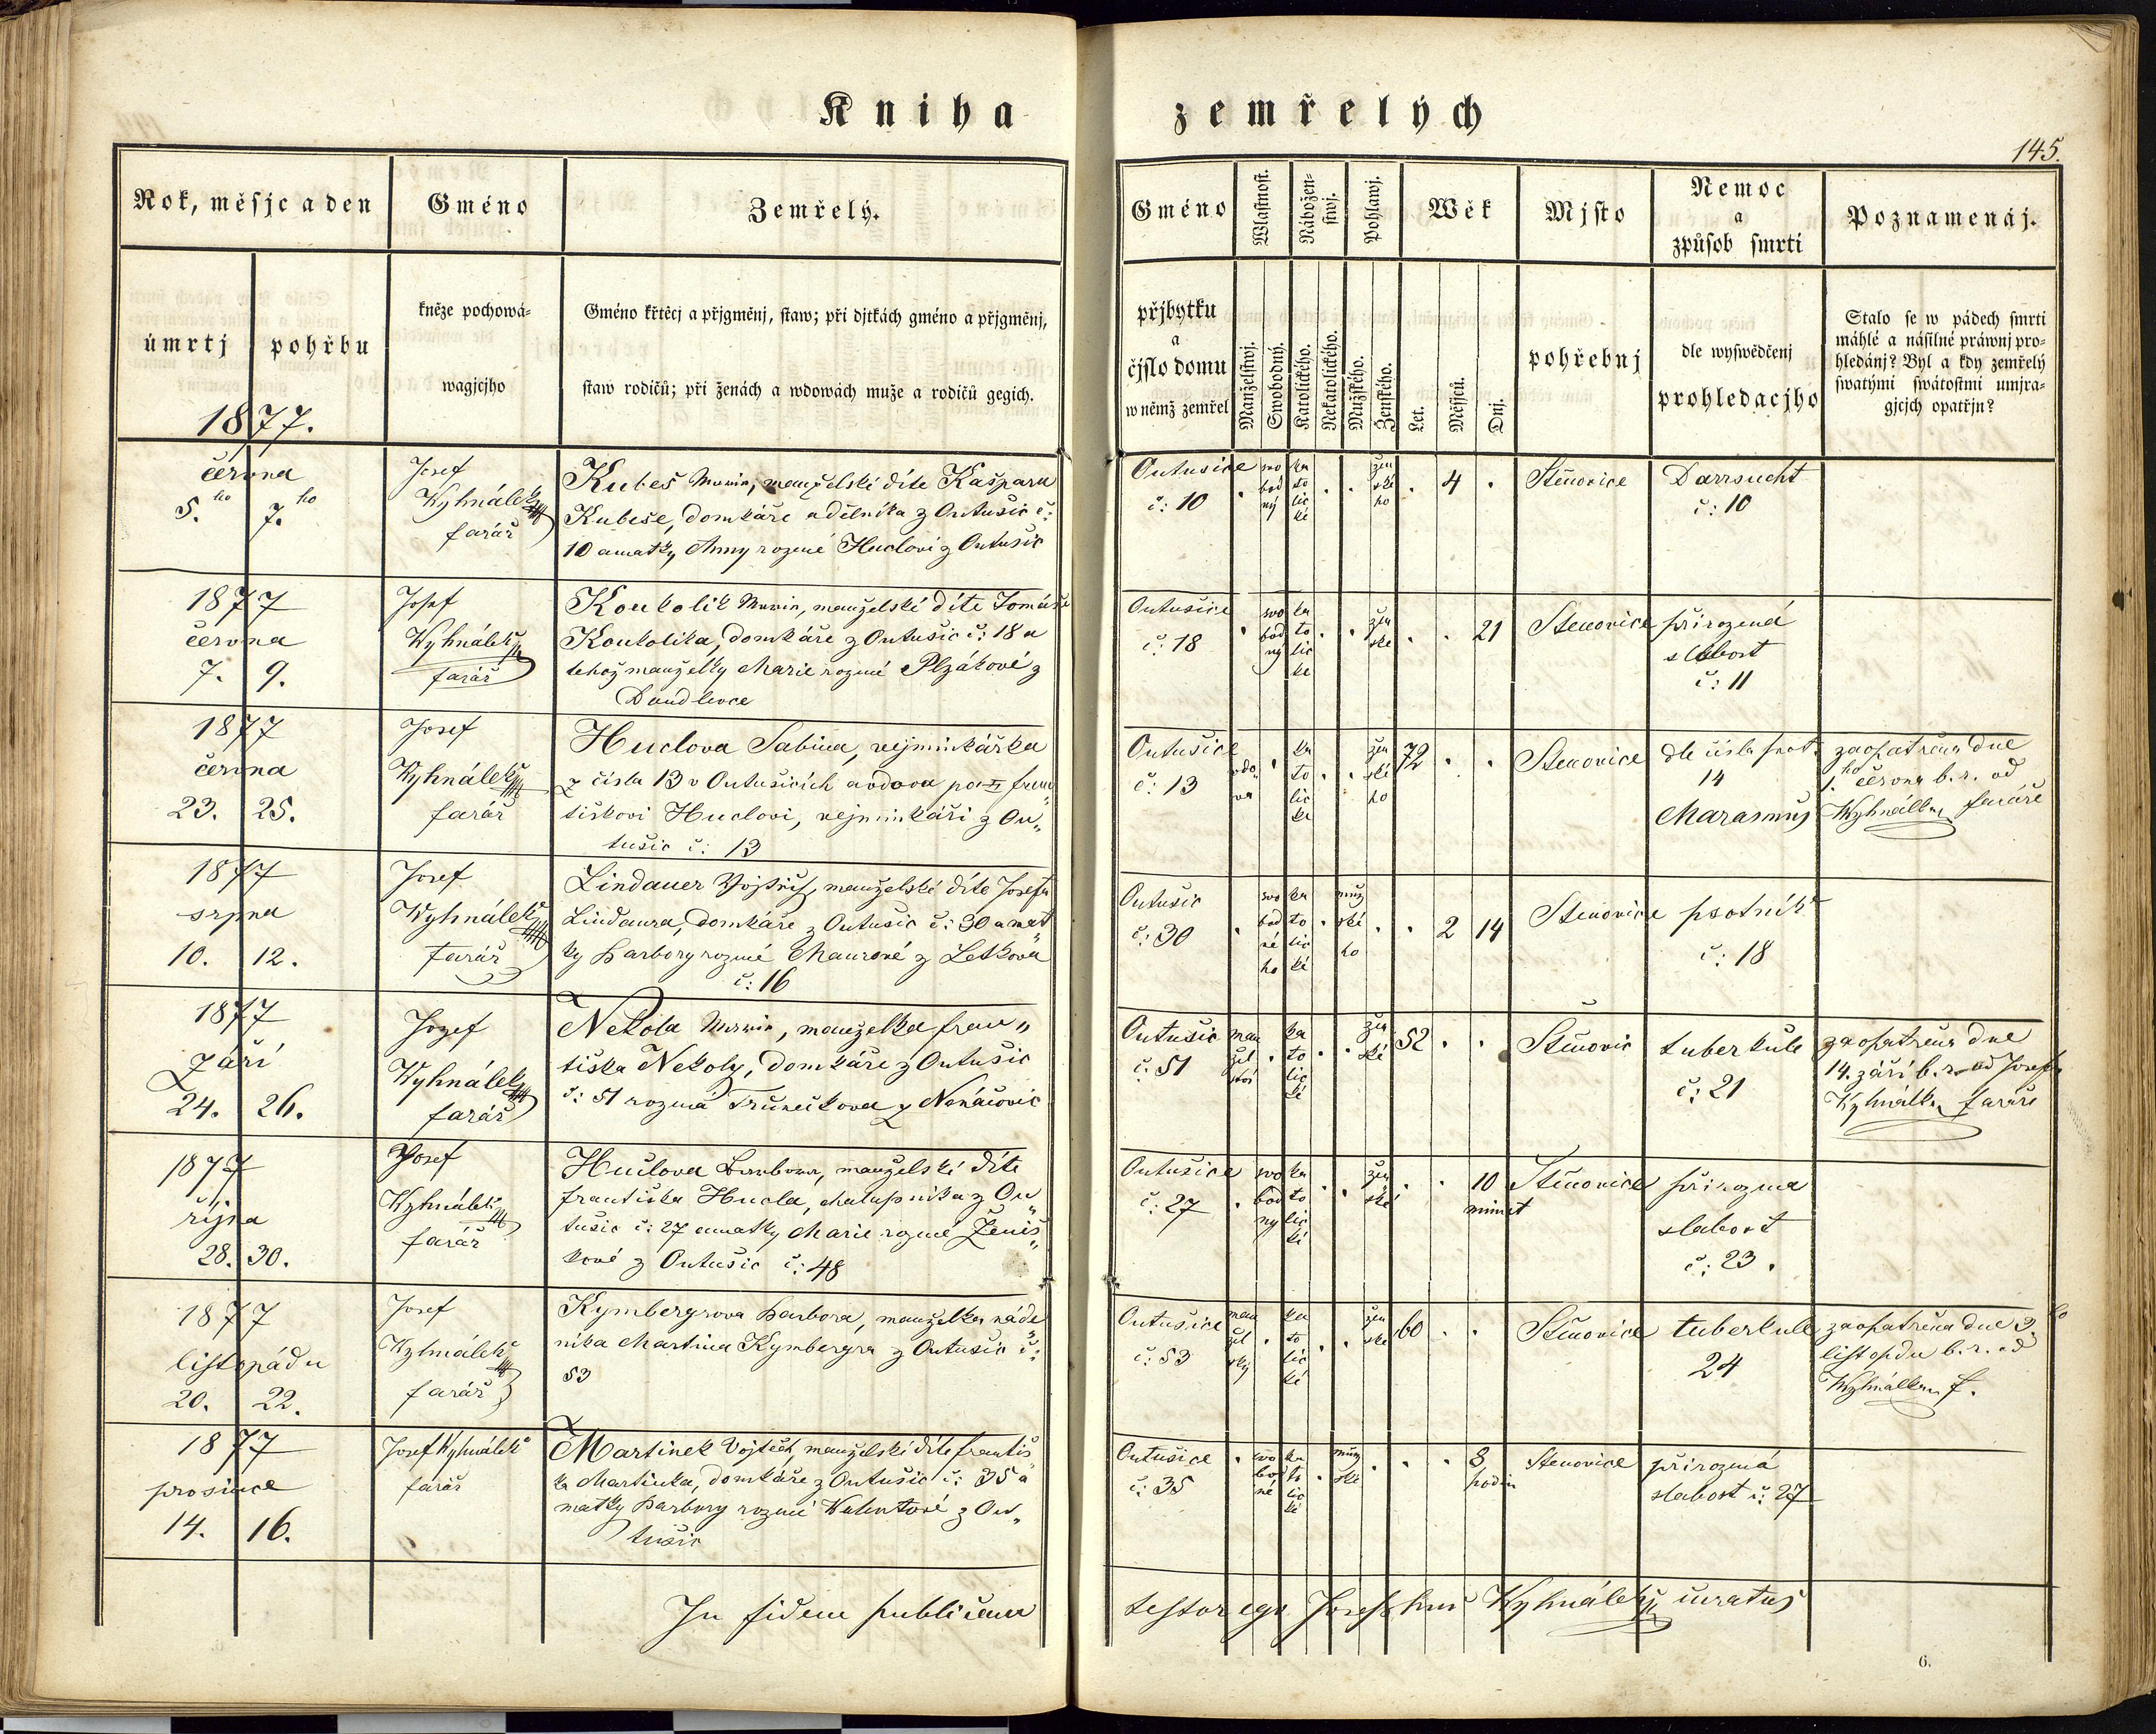 Kniha zemřelých
145.
Rok, měsjc a den
Gméno
Zemřelý.
úmrtj
pohřbu
kněze pochowá-
wagjcjho
Gméno křtěcj a přjgměnj, staw; při djtkách gméno a přjgměnj,
staw rodičů; při ženách a wdowách muže a rodičů gegich.
1877.
Gméno
Wlastnost.
Nábožen-
stwj.
Pohlawj.
Wěk
Mjsto
Nemoc
a
způsob smrti
Poznamenáj.
přjbytku
a
čjslo domu
w němž zemřel
Manželstwj.
Swobodný.
Katolického.
Nekatolického.
Mužského.
Ženského.
Let.
Měsjců.
Dnj.
pohřebnj
dle wyswědčenj
prohledacjho
Stalo se w pádech smrti
náhlé a násilné práwnj pro-
hledánj? Byl a kdy zemřelý
swatými swátostmi umjra-
gjcjch opatřjn?
června
5.ho 7.ho
Josef
Wyhnálek
farář
Kubeš Marie, manželské díte Kašpara
Kubeše, domkáře a dělníka z Outušic č:
10 a matky Anny rozené Huclové z Outušic
Outusice
č: 10
swo
bod
ný
ka
to
lic
ké
žen
ské
ho
4
Štěnovice
Darrsucht
č: 10
1877
června
7. 9.
Josef
Wyhnálek
farář
Koukolík Marie, manželské díte Tomáše
Koukolíka, domkáře z Outušic č: 18 a
téhož manželky Marie rozené Plzákové z
Doudlevce
Outusice
č: 18
swo
bod
ný
ka
to
lic
ke
žen
ske
21
Stenovice
přirozená
slabost
č: 11
1877
června
23. 25.
Josef
Wyhnálek
farář
Huclova Sabina, vejminkářka
z čísla 13 v Outušicích a vdova po Fran
tiškovi Huclovi, vejminkáři z Ou„
tušic č: 13
Outušice
č: 13
vdo
va
ka
to
lic
ka
žen
ské
ho
72
Stenovice
dle čísla prot.
14
Marasmus
zaopatřena dne
1.ho června b. r. od
Wyhnálka faráře
1877
srpna
10. 12.
Josef
Wyhnálek
farář
Lindauer Vojtěch, manželské díte Josefa
Lindaura, domkáře z Outušic č: 30 a mat
ky Barbory rozené Maurové z Letkova
č: 16
Outusic
č: 30
swo
bod
né
ho
ka
to
lic
ké
muž
ské
ho
2 14
Stenovice
psotník
č: 18
1877
Září
24. 26.
Jozef
Wyhnálek
farář
Nekola Marie, manželka fran„
tiška Nekoly, domkáře z Outušic
č: 51 rozená Trunečkova z Nenačovic
Outušic
č: 51
man
žel
ství
ka
to
lic
ké
žen
ské
52
Stěnovic
tuberkule
č: 21
zaopatřena dne
14. září b. r. od Josefa
Wyhnálka faráře
1877
října
28. 30.
Josef
Wyhnálek
farář
Huclova Barbora, manželské díte
františka Hucla, chalupníka z Ou„
tušic č: 27 a matky Marie rozené Ženiš„
kové z Outušic č: 48
Outusice
č: 27
swo
bod
ný
ka
to
lic
ké
žen
ské
10
minut
Stěnovice
přirozena
slabost
č: 23.
1877
listopádu
20. 22.
Josef
Wyhnálek
farář
Kymbergrova Barbora, manželka náde
níka Martina Kymbergra z Outušic č:
53
Outušice
č: 53
man
žel
ský
ka
to
lic
ké
žen
ske
60
Stěnovice
tuberkule
24
zaopatřena dne 3.ho
listopdu b. r. od
Wyhnálka f.
1877
prosince
14. 16.
Josef Wyhnálek
farář
Martinek Vojtěch, manželské díte františ
ka Martinka, domkáře z Outušic č: 35 a
matky Barbory rozené Walentové z Ou„
tušic
Outušice
č: 35
swo
bod
né
ka
to
lic
ké
muž
ské
8
hodin
Stenovice
přirozená
slabost č: 27
In fidem publicam testor ego Josephus Wyhnálek curatus
6.